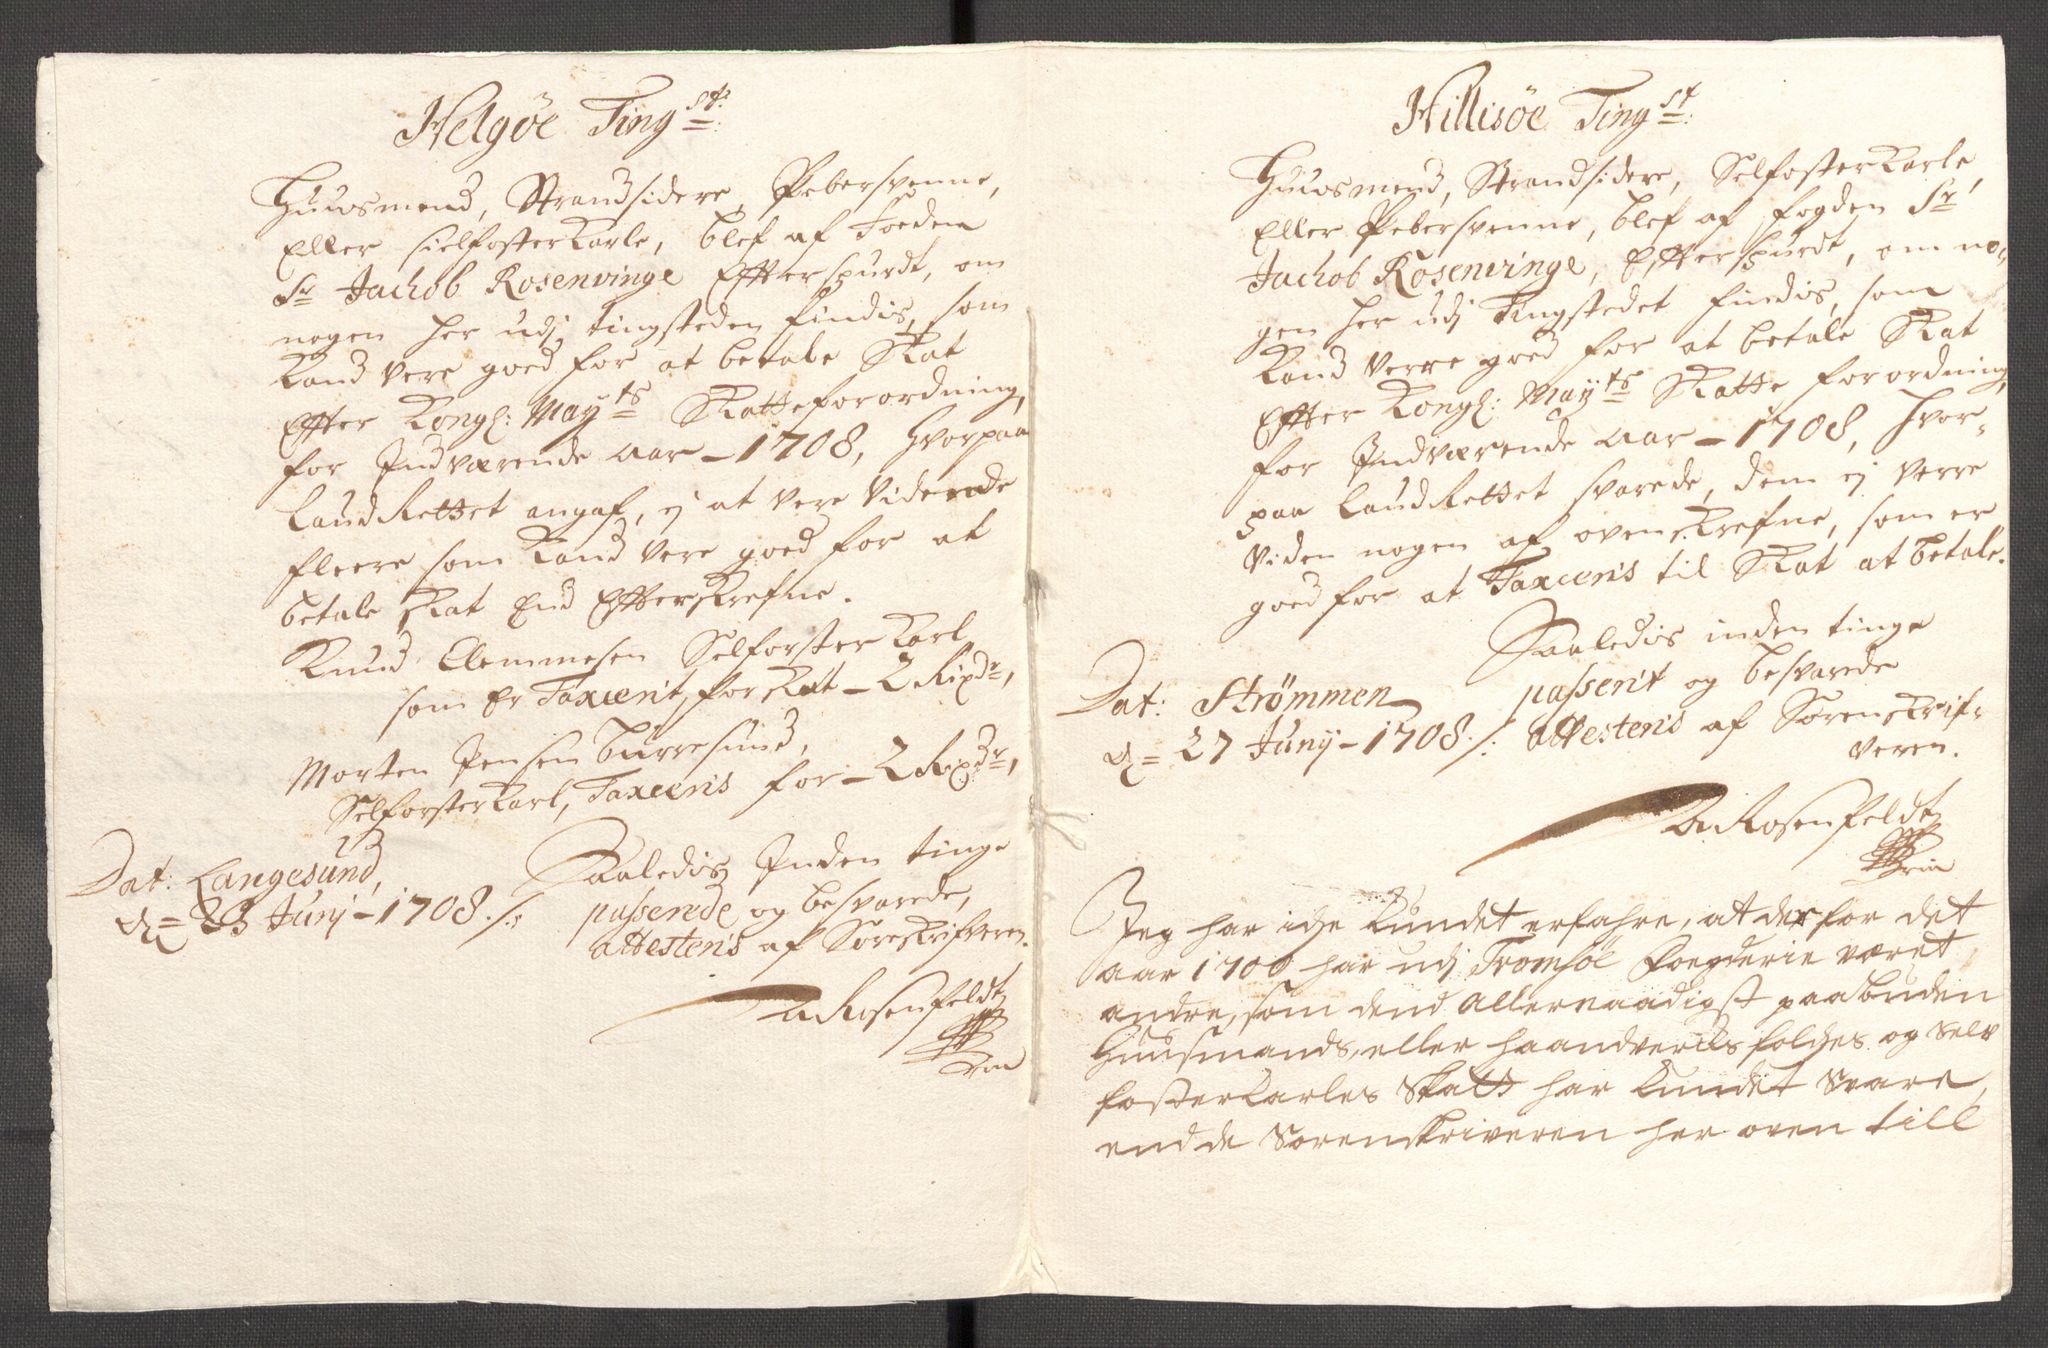 Helgøe Ting st:
Huusmend, Strandsidere, Pebersvenne,
Eller sielfosterkarle, blef af Foeden
Sr Jachob Rosenvinge Effterspurdt, om
nogen her udj tingsteden findis, som
Kand vere goed for at betale Skat
Effter Kongl: Mayts Skatteforordning,
for Indværende aar - 1708, hvorpaa
LaudRettet angaf, ej at vere vidende
fleere som Kand vere goed for at
betale skat End Effterskrefne.
Knud Clemmesen Selforster Karl
som Er Taxcerit, for skat - 2 Rixdr,
Morten Jensen Burresund,
Selforster Karl, Taxceris for - 2 Rixdr,
Saaledis Inden tinge
Dat: Langesund,
d = 23 Junj - 1708 ./: passerede og besvarede,
attesteris af Sorenskrifveren.
ARosenfeldt
Hillisøe Ting st:
Huusmend, Strandsidere, Selfosterkarle,
Eller Pebersvenne, blef af fogden Sr
Jachob Rosenvinge, Effterspurdt, om no-
gen her udj Tingstedet findis, som
Kand verre goed for at betale Skat
Effter Kongl: Mayts Skatte forordning,
for Indværende aar - 1708, hvor-
paa LaudRettet svarede, dem ej verre
viden nogen af ovenskrefne, som er
goed for at Taxceris til Skat at betale.
Saaledis inden tinge
Dat: Strømmen passerit og besvarede
d = 27 Junij - 1708 ./: attesteris af Sorenskrif-
veren.
ARosenfeldt
Jeg har iche kundet erfahre, at der for det
aar 1708 har udj Tromsøe Foegderie været
andre, som dend allernaadigst paabuden
Huusmands, eller haandvercks folches og Selv
foster Karles Skatt har kundet Svare,
end de Sorenskriveren her oven till